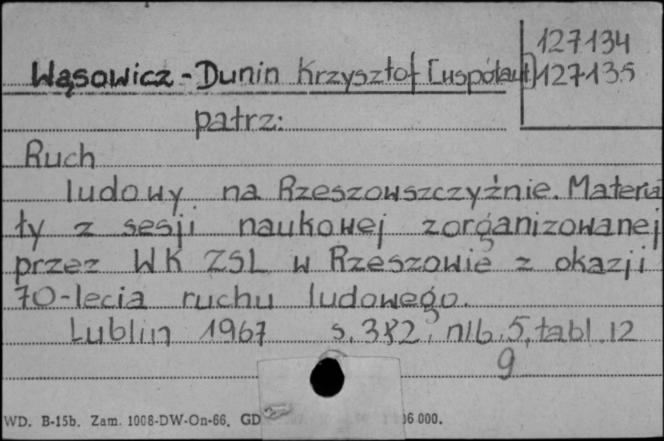 127134
Wąsowicz-Dunin Krzysztof [współaut] 127135
patrz:
Ruch
ludowy na Rzeszowszczyźnie. Materia
ły z sesji naukowej zorganizowanej
przez WK ZSL w Rzeszowie z okazji
70-lecia ruchu ludowego.
Lublin 1967 s. 382, nlb. 5, tabl. 12
9
WD. B-15b. Zam. 1008-DW-On-66. GD 6 000.